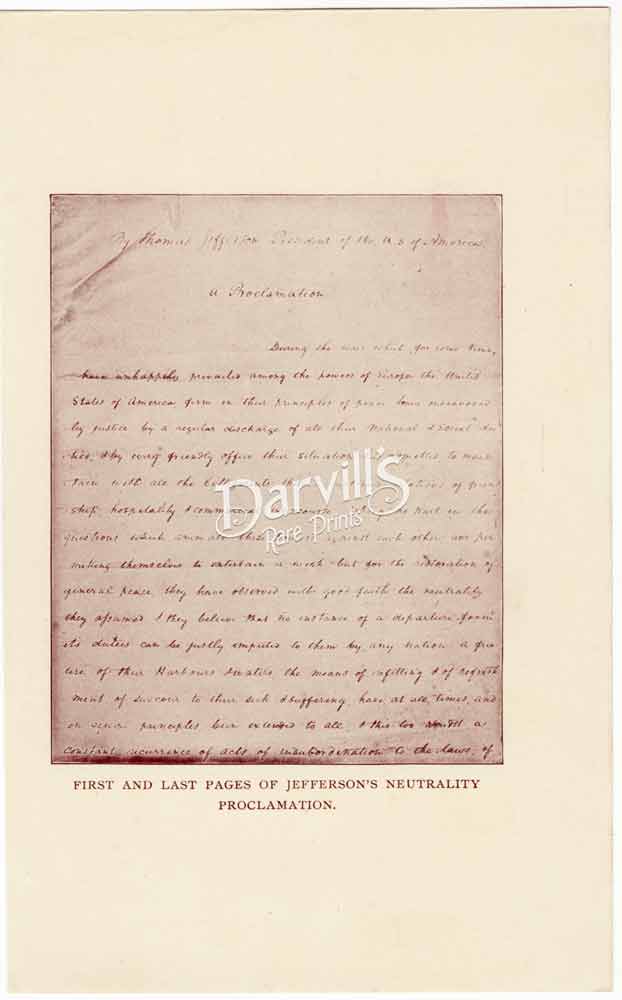 By Thomas Jefferson President of the U. S of America.
A Proclamation
During the war which for some time,
have unhappily prevailed among the powers of Europe the United
States of America, firm in their principles of peace have endeavored
by justice by a regular discharge of all their National & Social du
ties, & by every friendly office their situation to main
tain with all the relations of friend
ship, hospitality & commercial no part in the
questions which animate these against each other nor per
mitting themselves to entertain a wish but for the restoration of
general peace, they have observed with good faith the neutrality
they assumed & they believe that no instance of a departure from
its duties can be justly imputed to them by any nation. A free
use of their Harbours & waters, the means of refitting & of refresh
ment of succour to their sick & suffering, have at all times, and
on equal principles been extended to all, & this too amidst a
constant recurrence of acts of insubordination to the laws, of
Darvill's
Rare Prints
FIRST AND LAST PAGES OF JEFFERSON'S NEUTRALITY
PROCLAMATION.